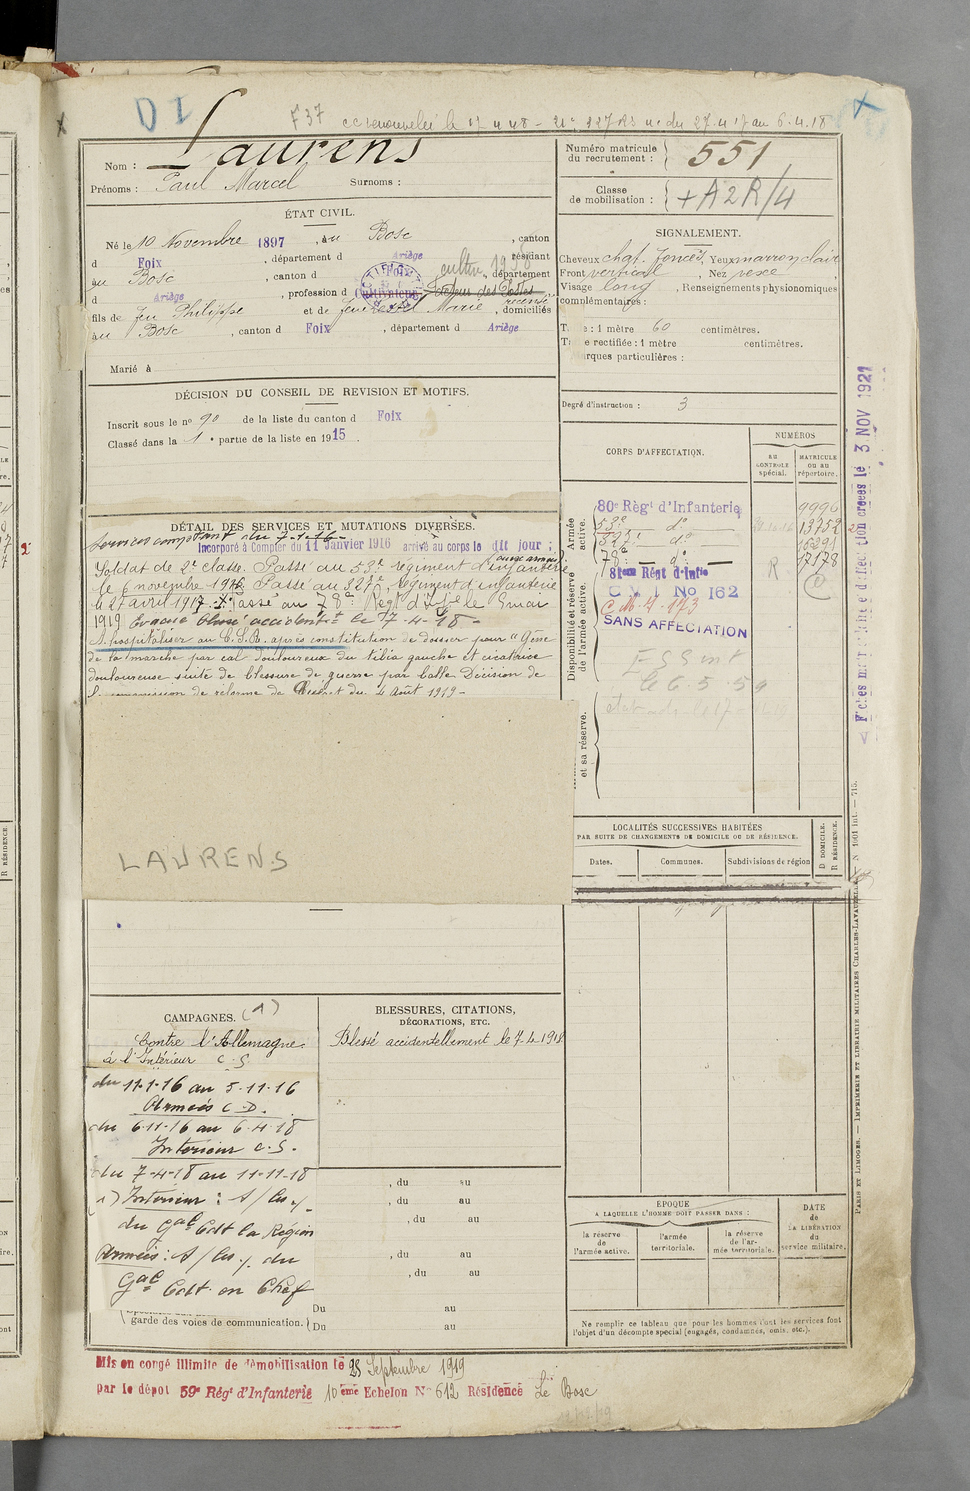 D I
F 37
Nom : Laurens
Prénoms : Paul Marcel Surnoms :
Numéro matricule du recrutement : 551
Classe de mobilisation : + A 2 R/4
ÉTAT CIVIL.
Né le 10 Novembre 1897, au Bosc, canton
d Foix, département d Ariège, résidant
au Bosc, canton d Foix, département
d Ariège, profession d Cultivateur
fils de feu Philippe et de Marie, domiciliés
au Bosc, canton d Foix, département d Ariège
Marié à
SIGNALEMENT.
Cheveux chat. foncés, Yeux marron clair
Front vertical, Nez vexe
Visage long, Renseignements physionomiques
complémentaires :
: 1 mètre 60 centimètres.
rectifiée : 1 mètre centimètres.
rques particulières :
Degré d'instruction : 3
DÉCISION DU CONSEIL DE REVISION ET MOTIFS.
Inscrit sous le n° 90 de la liste du canton d Foix
Classé dans la 1e partie de la liste en 1915.
CORPS D'AFFECTATION.
NUMÉROS
AU CONTROLE spécial.
MATRICULE ou au répertoire.
Armée active.
80e Régt d'Infanterie
53e do
327e do
78e do
81ème Régt d'Infie
C M I No 162
C.M.I. 173
SANS AFFECTATION
Disponibilité et réserve de l'armée active.
et sa réserve.
Fiches created le 3 NOV 1921
DÉTAIL DES SERVICES ET MUTATIONS DIVERSES.
Services comptant du 7-1-16
Incorporé à Compter du 11 Janvier 1916 arrivé au corps le dit jour ;
Soldat de 2e classe. Passé au 53e régiment d'infanterie
le 6 novembre 1916. Passé au 327e régiment d'infanterie
le 27 avril 1917. Passé au 78e Régt d'Ife le 9 mai
1919 Evacué blessé accidentt le 7-4-18 -
A hospitaliser au C.S.R. après constitution de dossier pour "Gêne
de la marche par cal douloureux du tibia gauche et cicatrice
douloureuse suite de blessure de guerre par balle. Décision de
commission de réforme de du 4 Août 1919 -
LAURENS
LOCALITÉS SUCCESSIVES HABITÉES
PAR SUITE DE CHANGEMENTS DE DOMICILE OU DE RÉSIDENCE.
Dates. Communes. Subdivisions de région
D DOMICILE. R RÉSIDENCE.
CAMPAGNES. (1)
Contre l'Allemagne
à l'Intérieur C.S.
du 11-1-16 au 5-11-16
Armées C.D.
du 6-11-16 au 6-4-18
Interieur C.S.
du 7-4-18 au 11-11-18
1) Interieur :
du Gal Cdt la Région
Armées : du
Gal Cdt en Chef
garde des voies de communication.
BLESSURES, CITATIONS,
DÉCORATIONS, ETC.
Blessé accidentellement le 7-4-1918
, du au
, du au
, du au
, du au
, du au
Du au
Du au
ÉPOQUE
A LAQUELLE L'HOMME DOIT PASSER DANS :
la réserve de l'armée active.
l'armée territoriale.
la réserve de l'armée territoriale.
DATE de LA LIBÉRATION du service militaire.
Ne remplir ce tableau que pour les hommes dont les services font
l'objet d'un décompte spécial (engagés, condamnés, omis, etc.).
PARIS ET LIMOGES. — IMPRIMERIE ET LIBRAIRIE MILITAIRES CHARLES-LAVAUZELLE
Mis en congé illimité de démobilisation le 23 Septembre 1919
par le dépot 59e Régt d'Infanterie 10ème Echelon N° 612 Résidence Le Bosc